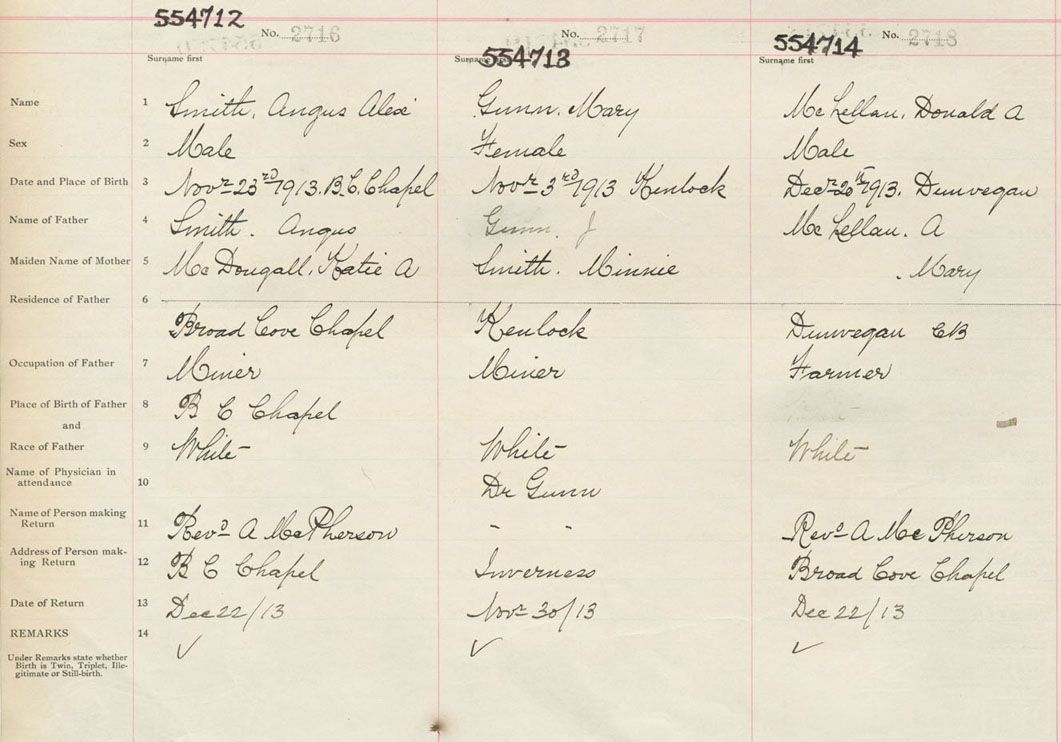 554712 No. 2716 554713 No. 2717 554714 No. 2718
Surname first Surname first Surname first
Name 1 Smith, Angus Alexr Gunn, Mary McLellan, Donald A
Sex 2 Male Female Male
Date and Place of Birth 3 Novr 23rd 1913. B.C. Chapel Novr 3rd 1913 Kenlock Decr 20th 1913. Dunvegan
Name of Father 4 Smith. Angus Gunn. J McLellan. A
Maiden Name of Mother 5 McDougall, Katie A Smith. Minnie . Mary
Residence of Father 6
Broad Cove Chapel Kenlock Dunvegan CB
Occupation of Father 7 Miner Miner Farmer
Place of Birth of Father 8 B C Chapel
and
Race of Father 9 White White White
Name of Physician in
attendance 10 Dr Gunn
Name of Person making
Return 11 Revd A McPherson " " Revd A McPherson
Address of Person mak-
ing Return 12 B C Chapel Inverness Broad Cove Chapel
Date of Return 13 Dec 22/13 Novr 30/13 Dec 22/13
REMARKS 14 ✓ ✓ ✓
Under Remarks state whether
Birth is Twin, Triplet, Ille-
gitimate or Still-birth.